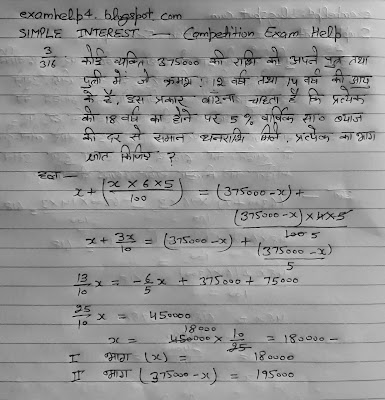 examhelp4.blogspot.com
SIMPLE INTEREST — Competition Exam Help
3/316 कोई व्यक्ति 375000 की राशि को अपने पुत्र तथा
पुत्री में जो क्रमशः 12 वर्ष तथा 14 वर्ष की आयु
के है, इस प्रकार बांटना चाहता है कि प्रत्येक
को 18 वर्ष का होने पर 5% वार्षिक सा० ब्याज
की दर से समान धनराशि मिले, प्रत्येक का भाग
ज्ञात किजिए ?
हल —
x + (x × 6 × 5 / 100) = (375000 - x) +
(375000 - x) × 4 × 5 / 100 5
x + 3x/10 = (375000 - x) + (375000 - x)/5
13/10 x = -6/5 x + 375000 + 75000
25/10 x = 450000
18000
x = 450000 × 10/25 = 180000 -
I भाग (x) = 180000
II भाग (375000 - x) = 195000